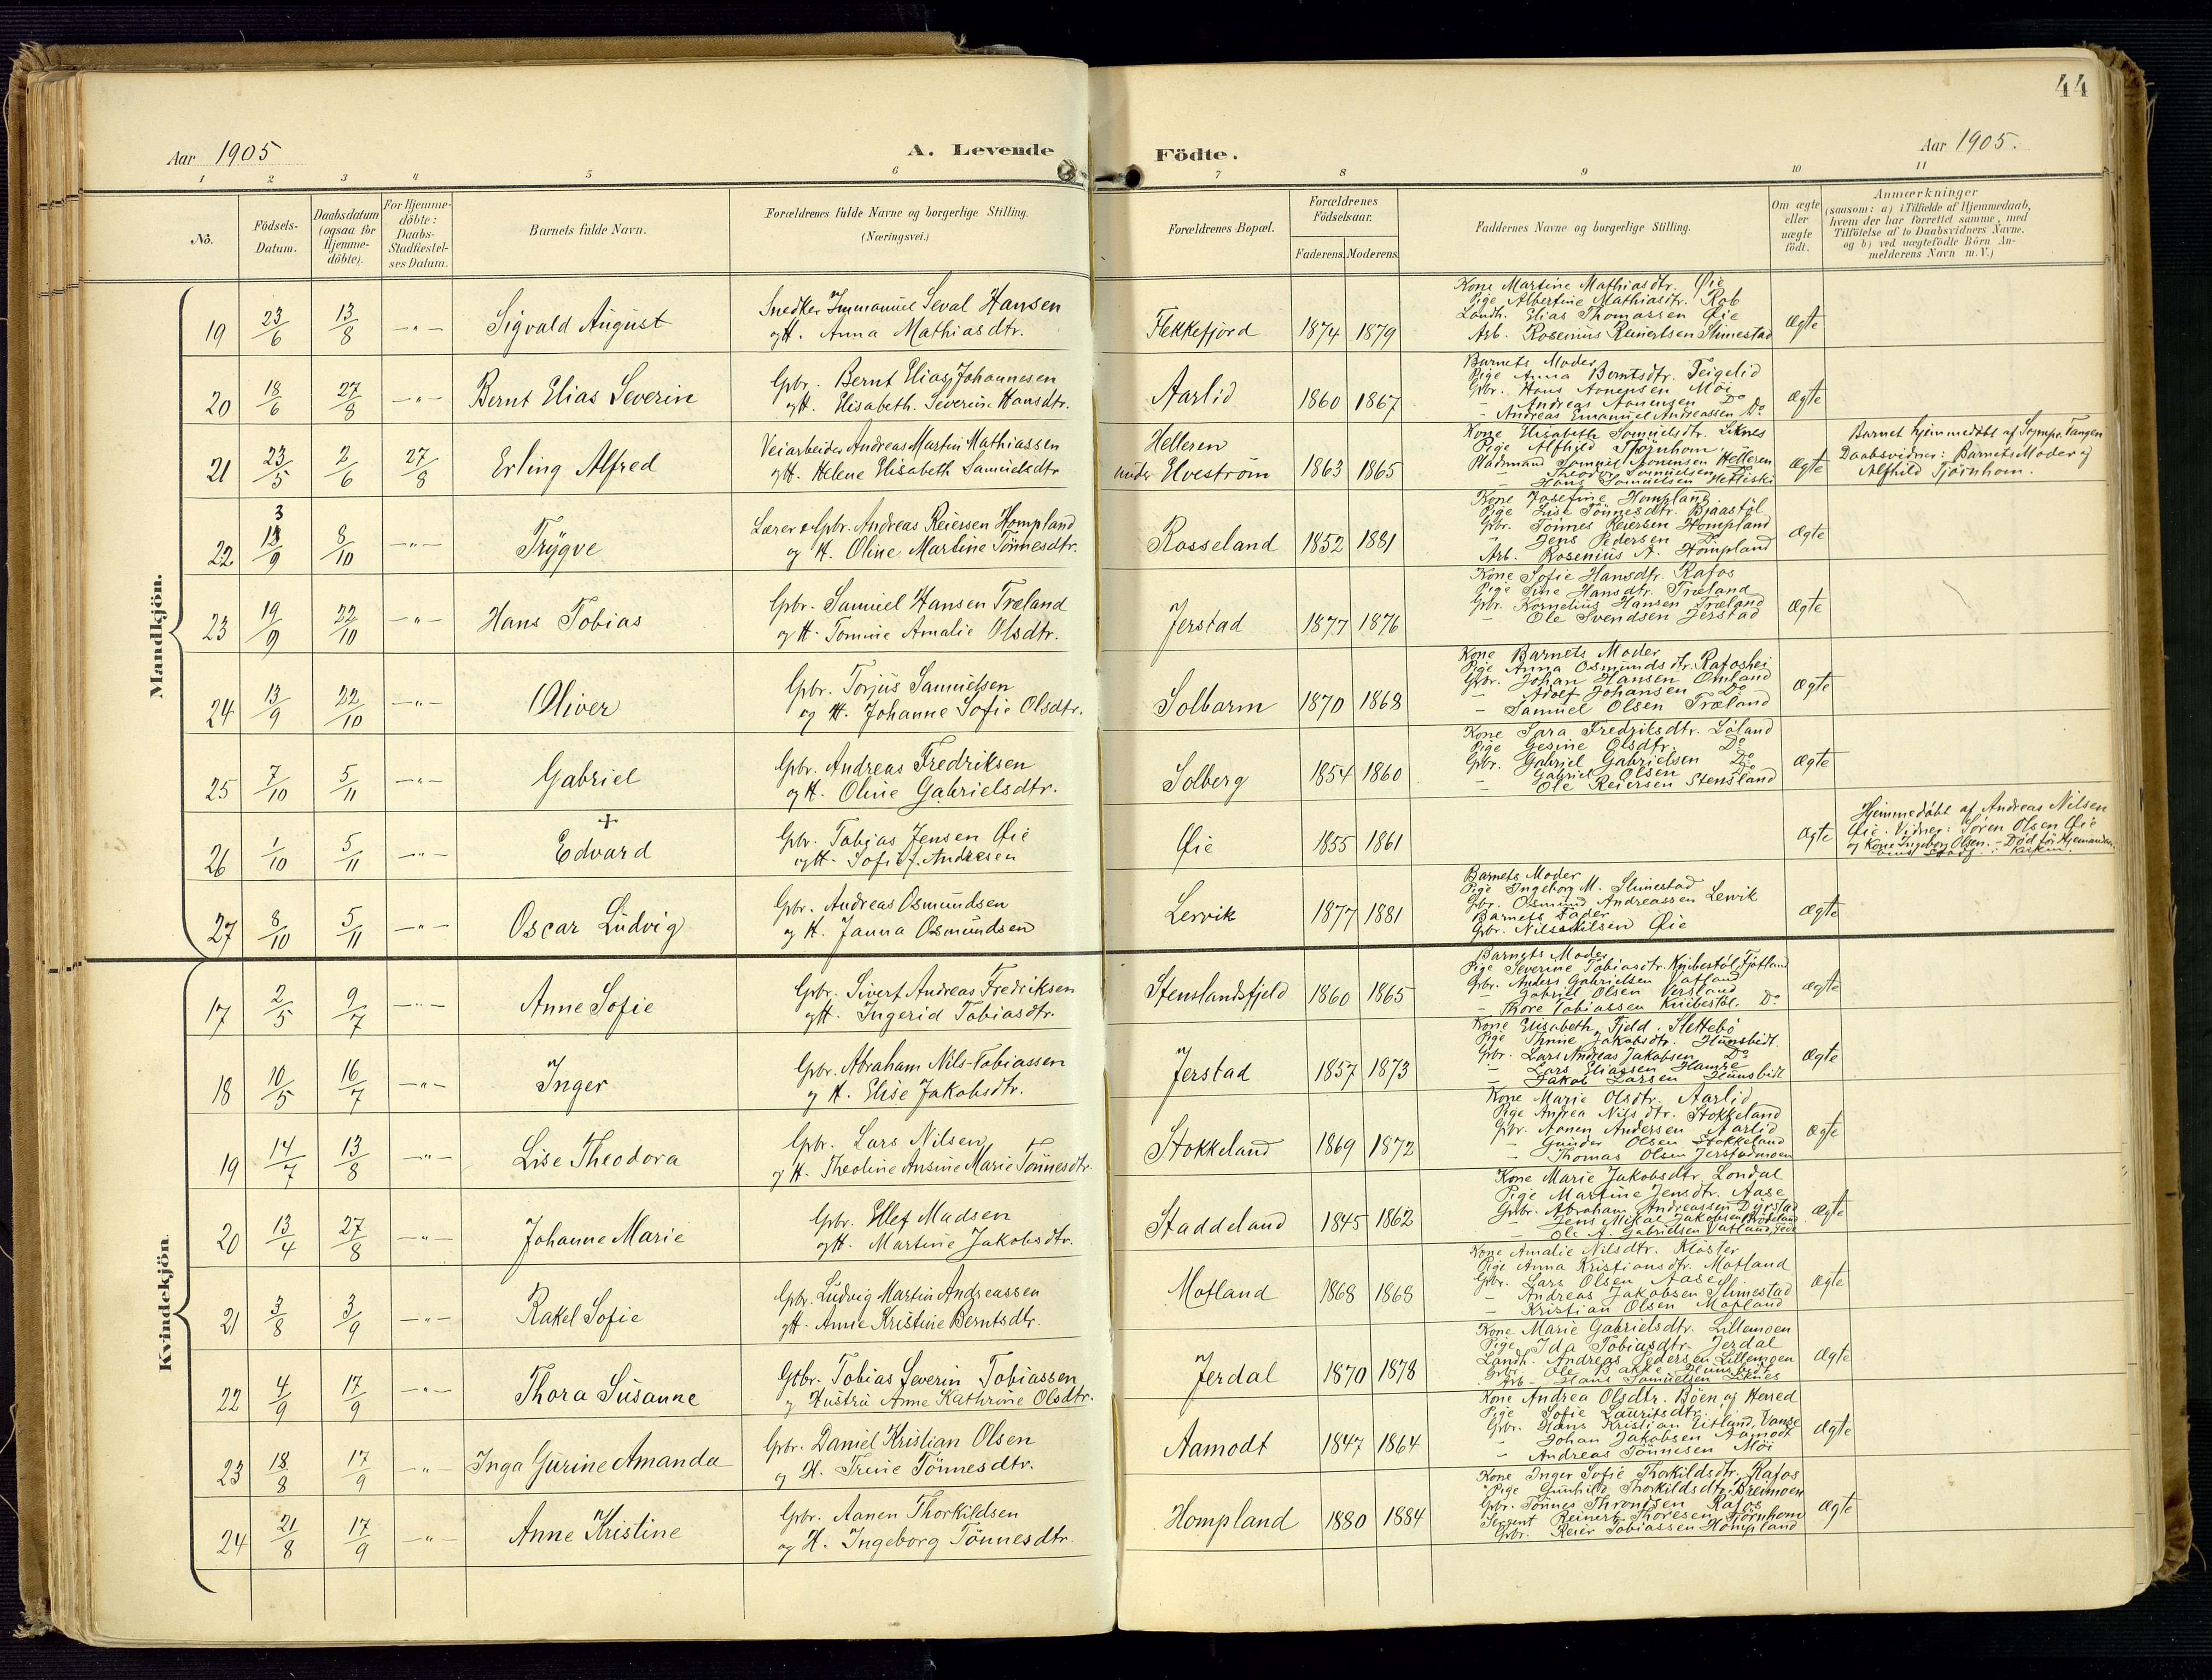 44
Aar 1905
A. Levende
Födte.
Aar 1905.
1 2 3 4 5 6 7 8 9 10 11
Nô.
Födsels-
Datum.
Daabsdatum
(ogsaa for
Hjemme-
döbte).
For Hjemme-
döbte:
Daabs-
Stadfæstel-
ses Datum.
Barnets fulde Navn.
Forældrenes fulde Navne og borgerlige Stilling.
(Næringsvei.)
Forældrenes Bopæl.
Forældrenes
Födselsaar.
Faderens. Moderens.
Faddernes Navne og borgerlige Stilling.
Om ægte
eller
uægte
födt.
Anmærkninger
(saasom: a) i Tilfælde af Hjemmedaab,
hvem der har forrettet samme, med
Tilföielse af to Daabsvidners Navne.
og b) ved uægtefödte Börn An-
melderens Navn m. V.)
Mandkjön.
19 23/6 13/8 —"— Sigvald August
Snedker Immanuel Seval Hansen
og H. Anna Mathiasdtr.
Flekkefjord 1874 1879
Kone Martine Mathiasdtr. Øie
Pige Albertine Mathiasdtr. Rob
Landh. Elias Thomassen Øie
Arb. Rosenius Reinertsen Slimestad
Ægte
20 18/6 27/8 —"— Bernt Elias Severin
Gbr. Bernt Elias Johannesen
og H. Elisabeth Severine Hansdtr.
Aarlid 1860 1867
Barnets Moder
Pige Anna Berntsdtr. Teigelid
Gbr. Hans Aanensen Möi
- Andreas Aanensen Do
- Andreas Emanuel Andreassen Do
Ægte
21 23/5 2/6 27/8 Erling Alfred
Veiarbeider Andreas Martin Mathiassen
og H. Helene Elisabeth Samuelsdtr
Helleren
under Elveström 1863 1865
Kone Elisabeth Samuelsdtr. Liknes
Pige Alfhild Tjörnhom.
Pladsmand Samuel Aanensen Helleren
- Theodor Samuelsen Do
- Hans Samuelsen
Ægte
Barnet hjemmedöbt af Sogepr. Tangen
Daabsvidner: Barnets Moder og
Alfhild Tjörnhom.
22 13/9 8/10 —"— Trygve
3
Lærer & Gbr. Andreas Reiersen Hompland
og H. Oline Martine Tönnesdtr.
Rosseland 1852 1881
Kone Josefine Hompland
Pige Lise Tönnesdtr. Bjaastöl
Gbr. Tönnes Reiersen Hompland
" Jens Pedersen Do
Arb. Rosenius A. Hompland
Ægte
23 19/9 22/10 —"— Hans Tobias
Gbr. Samuel Hansen Træland
og H. Tomine Amalie Olsdtr.
Jerstad 1877 1876
Kone Sofie Hansdtr. Rafos
Pige Sine Hansdtr. Træland
Gbr. Kornelius Hansen Træland
- Ole Svendsen Jerstad
Ægte
24 13/9 22/10 —"— Oliver
Gbr. Torjus Samuelsen
og H. Johanne Sofie Olsdtr.
Solbarm 1870 1868
Kone Barnets Moder
Pige Anna Osmundsdtr. Rafoshei
Gbr. Johan Hansen Omland
- Adolf Johansen Do
- Samuel Olsen Træland
Ægte
25 7/10 5/11 —"— Gabriel
Gbr. Andreas Fredriksen
og H. Oline Gabrielsdtr.
Solberg 1854 1860
Kone Sara Fredriksdtr. Löland
Pige Gesine Olsdtr. Do
Gbr. Gabriel Gabrielsen Do
- Gabriel Olsen Do
- Ole Reiersen Stensland
Ægte
+
26 1/10 5/11 —"— Edvard
Gbr. Tobias Jensen Øie
og H. Sofie f. Andresen
Øie 1855 1861
Ægte
Hjemmedöbt af Andreas Nilsen
Øie. Vidner: Sören Olsen Øie
og Kone Ingeborg Olsen. – Död för Hjemmedaa-
bens Stadf. i Kirken.
27 8/10 5/11 —"— Oscar Ludvig
Gbr. Andreas Osmundsen
og H. Janna Osmundsen
Lervik 1877 1881
Barnets Moder
Pige Ingeborg M. Slimestad
Gbr. Osmund Andreassen Lervik
Barnets Fader
Gbr. Nils Nilsen Øie
Ægte
Kvindekjön
17 2/5 9/7 —"— Anne Sofie
Gbr. Sivert Andreas Fredriksen
og H. Ingerid Tobiasdtr.
Stenslandsfjeld 1860 1865
Barnets Moder
Pige Severine Tobiasdtr. Knibestöl, Fjotland
Gbr. Anders Gabrielsen Vatland
- Gabriel Olsen Versland
- Thore Tobiassen Knibestöl. Do
Ægte
18 10/5 16/7 —"— Inger
Gbr. Abraham Nils Tobiassen
og H. Elise Jakobsdtr.
Jerstad 1857 1873
Kone Elisabeth Fjeld. Slettebö
Pige Thrine Jakobsdtr. Hunsbedt
Gbr. Lars Andreas Jakobsen Do
- Lars Eliassen Hamre
- Jakob Larsen Hunsbedt
Ægte
19 14/7 13/8 —"— Lise Theodora
Gbr. Lars Nilsen
og H. Theoline Ansine Marie Tönnesdtr.
Stokkeland 1869 1872
Kone Marie Olsdtr. Aarlid
Pige Andrea Nilsdtr. Stokkeland
Gbr. Aanen Andersen Aarlid
- Gunder Olsen Stokkeland
- Thomas Olsen Jerstadmoen
Ægte
20 13/4 27/8 —"— Johanne Marie
Gbr. Ellef Madsen
og H. Martine Jakobsdtr.
Staddeland 1845 1862
Kone Marie Jakobsdtr. Londal
Pige Martine Jensdtr. Aase
Gbr. Abraham Andreassen Dyrstad
- Jens Mikal Jakobsen
- Ole A. Gabrielsen Vatland,
Ægte
21 3/8 3/9 —"— Rakel Sofie
Gbr. Ludvig Martin Andreassen
og H. Anne Kristine Berntsdtr.
Motland 1868 1868
Kone Amalie Nilsdtr. Kloster
Pige Anna Kristiansdtr. Motland
Gbr. Lars Olsen Aase
- Andreas Jakobsen Slimestad
- Kristian Olsen Motland
Ægte
22 4/9 17/9 —"— Thora Susanne
Gbr. Tobias Severin Tobiassen
og Hustru Anne Kathrine Olsdtr.
Jerdal 1870 1878
Kone Marie Gabrielsdtr. Lillemoen
Pige Ida Tobiasdtr. Jerdal
Landh. Andreas Pedersen Lillemoen
Gbr. Ole Bakke Hunsbedt
Arb - Hans Samuelsen Liknes
Ægte
23 18/8 17/9 —"— Inga Gurine Amanda
Gbr. Daniel Kristian Olsen
og H. Trine Tönnesdtr.
Aamodt 1847 1864
Kone Andrea Olsdtr. Böen, og Herred
Pige Sofie Lauritsdtr.
Gbr. Hans Kristian Eitland, Vanse
- Johan Jakobsen Aamodt
- Andreas Tönnesen Möi
Ægte
24 21/8 17/9 —"— Anne Kristine
Gbr. Aanen Thorkildsen
og H. Ingeborg Tönnesdtr.
Hompland 1880 1884
Kone Inger Sofie Thorkildsdtr. Rafos
Pige Gunhild Thorkildsdtr. Breimoen
Gbr. Tönnes Throndsen Rafos
Sergent Reinert Thoresen Tjörnhom
Gbr. Reier Tobiassen Hompland
Ægte